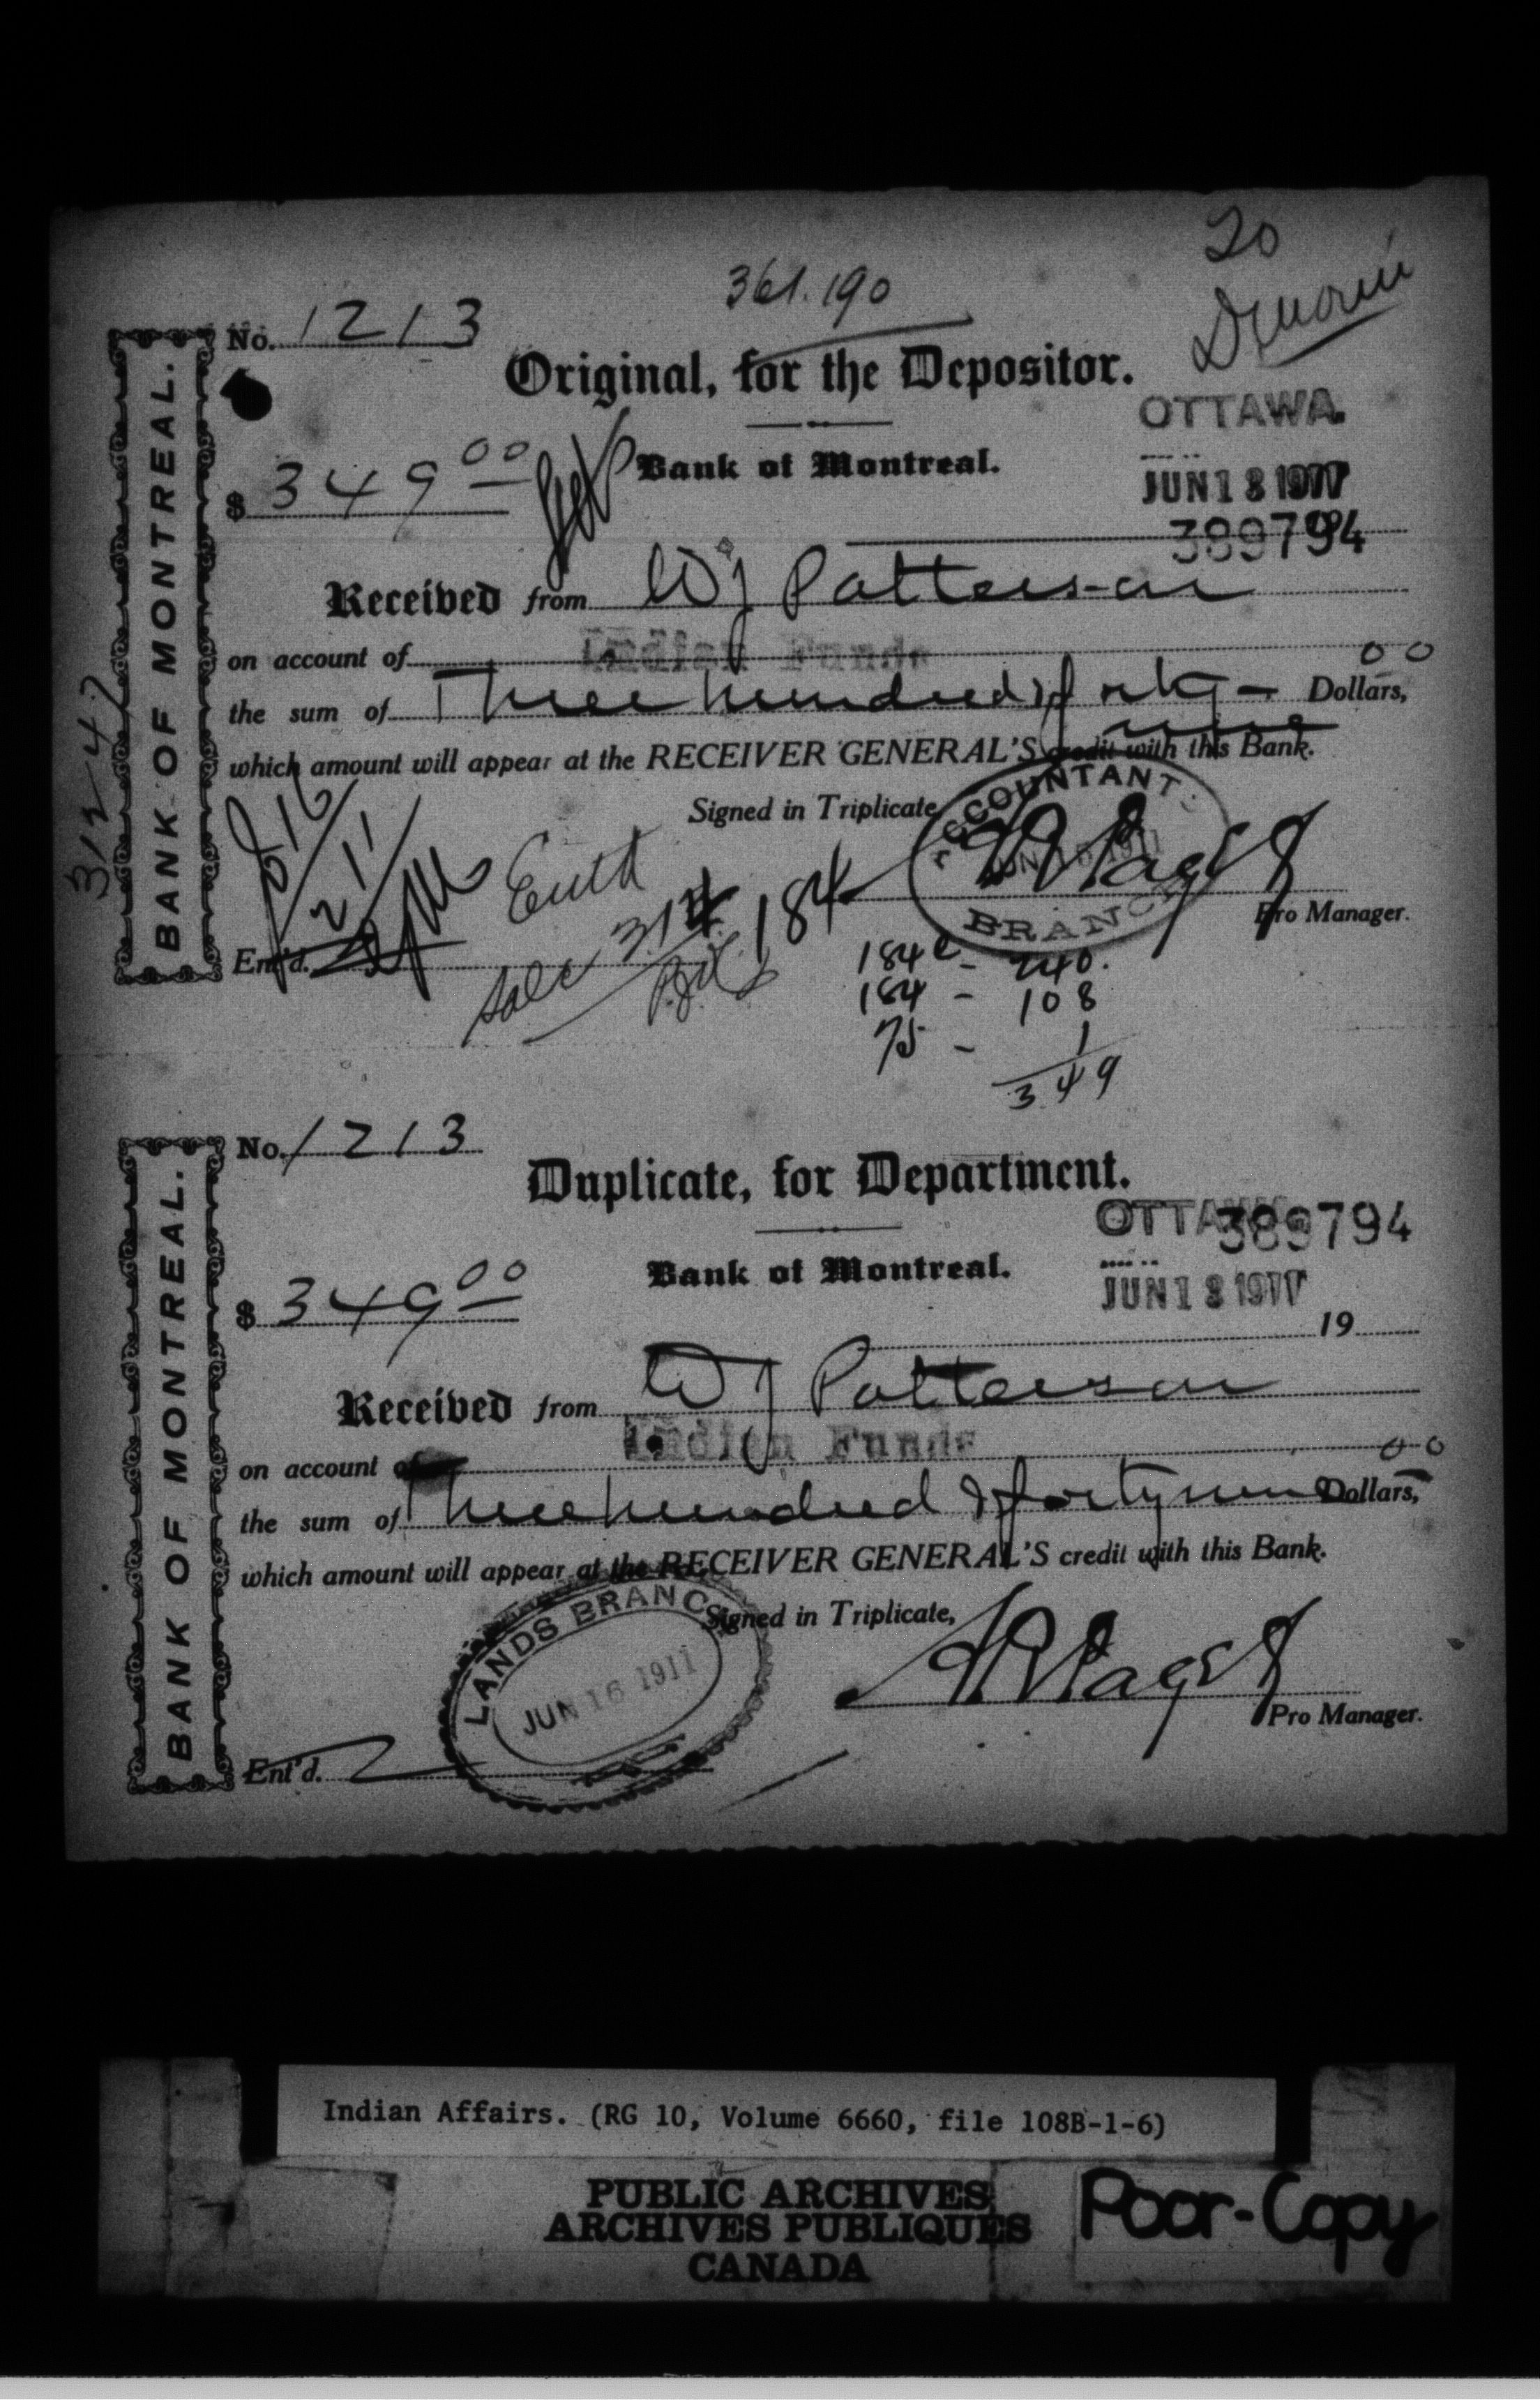 20
361.190
No. 1213
Original, for the Depositor.
OTTAWA
$ 349 00
Bank of Montreal.
JUN 13 1911
389794
Received from W J Patterson
on account of Indian Funds
the sum of Three hundred & forty - nine 00 Dollars,
which amount will appear at the RECEIVER GENERAL'S credit with this Bank.
Signed in Triplicate
ACCOUNTANT'S
JUN 16 1911
BRANCH
Pro Manager.
Ent'd.
Sale 314
184
184 - 240.
184 - 108
75 - 1
349
BANK OF MONTREAL.
No. 1213
Duplicate, for Department.
OTTAWA
389794
$ 349 00
Bank of Montreal.
JUN 13 1911
19
Received from W J Patterson
on account of Indian Funds
the sum of Three hundred & forty nine 00 Dollars,
which amount will appear at the RECEIVER GENERAL'S credit with this Bank.
LANDS BRANCH
JUN 16 1911
Signed in Triplicate,
Pro Manager.
Ent'd.
BANK OF MONTREAL.
Indian Affairs. (RG 10, Volume 6660, file 108B-1-6)
PUBLIC ARCHIVES
ARCHIVES PUBLIQUES
CANADA
Poor-Copy